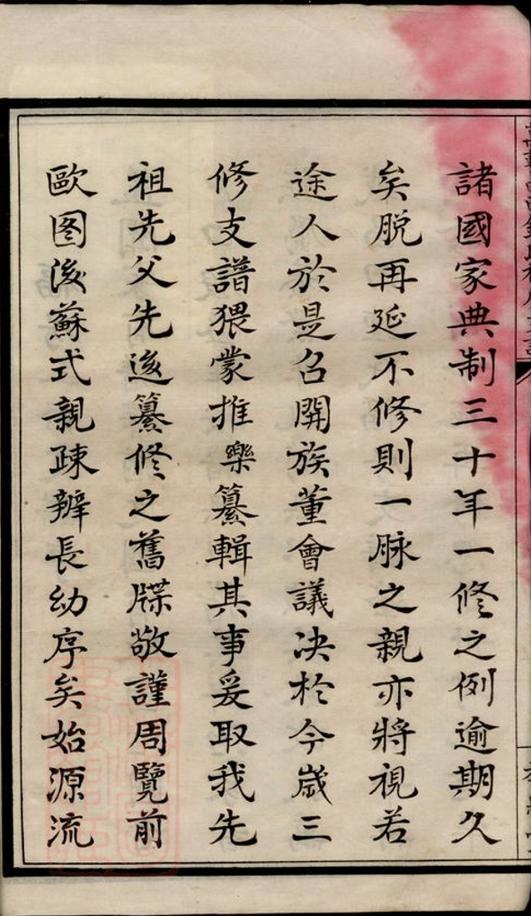 諸國家典制三十年一修之例逾期久
矣脱再延不修則一脉之親亦將視若
途人於是召開族董會議决於今歲三
修支譜猥蒙推樂纂輯其事爰取我先
祖先父先後纂修之舊牒敬謹周覽前
歐图後蘇式親疎辨長幼序矣始源流